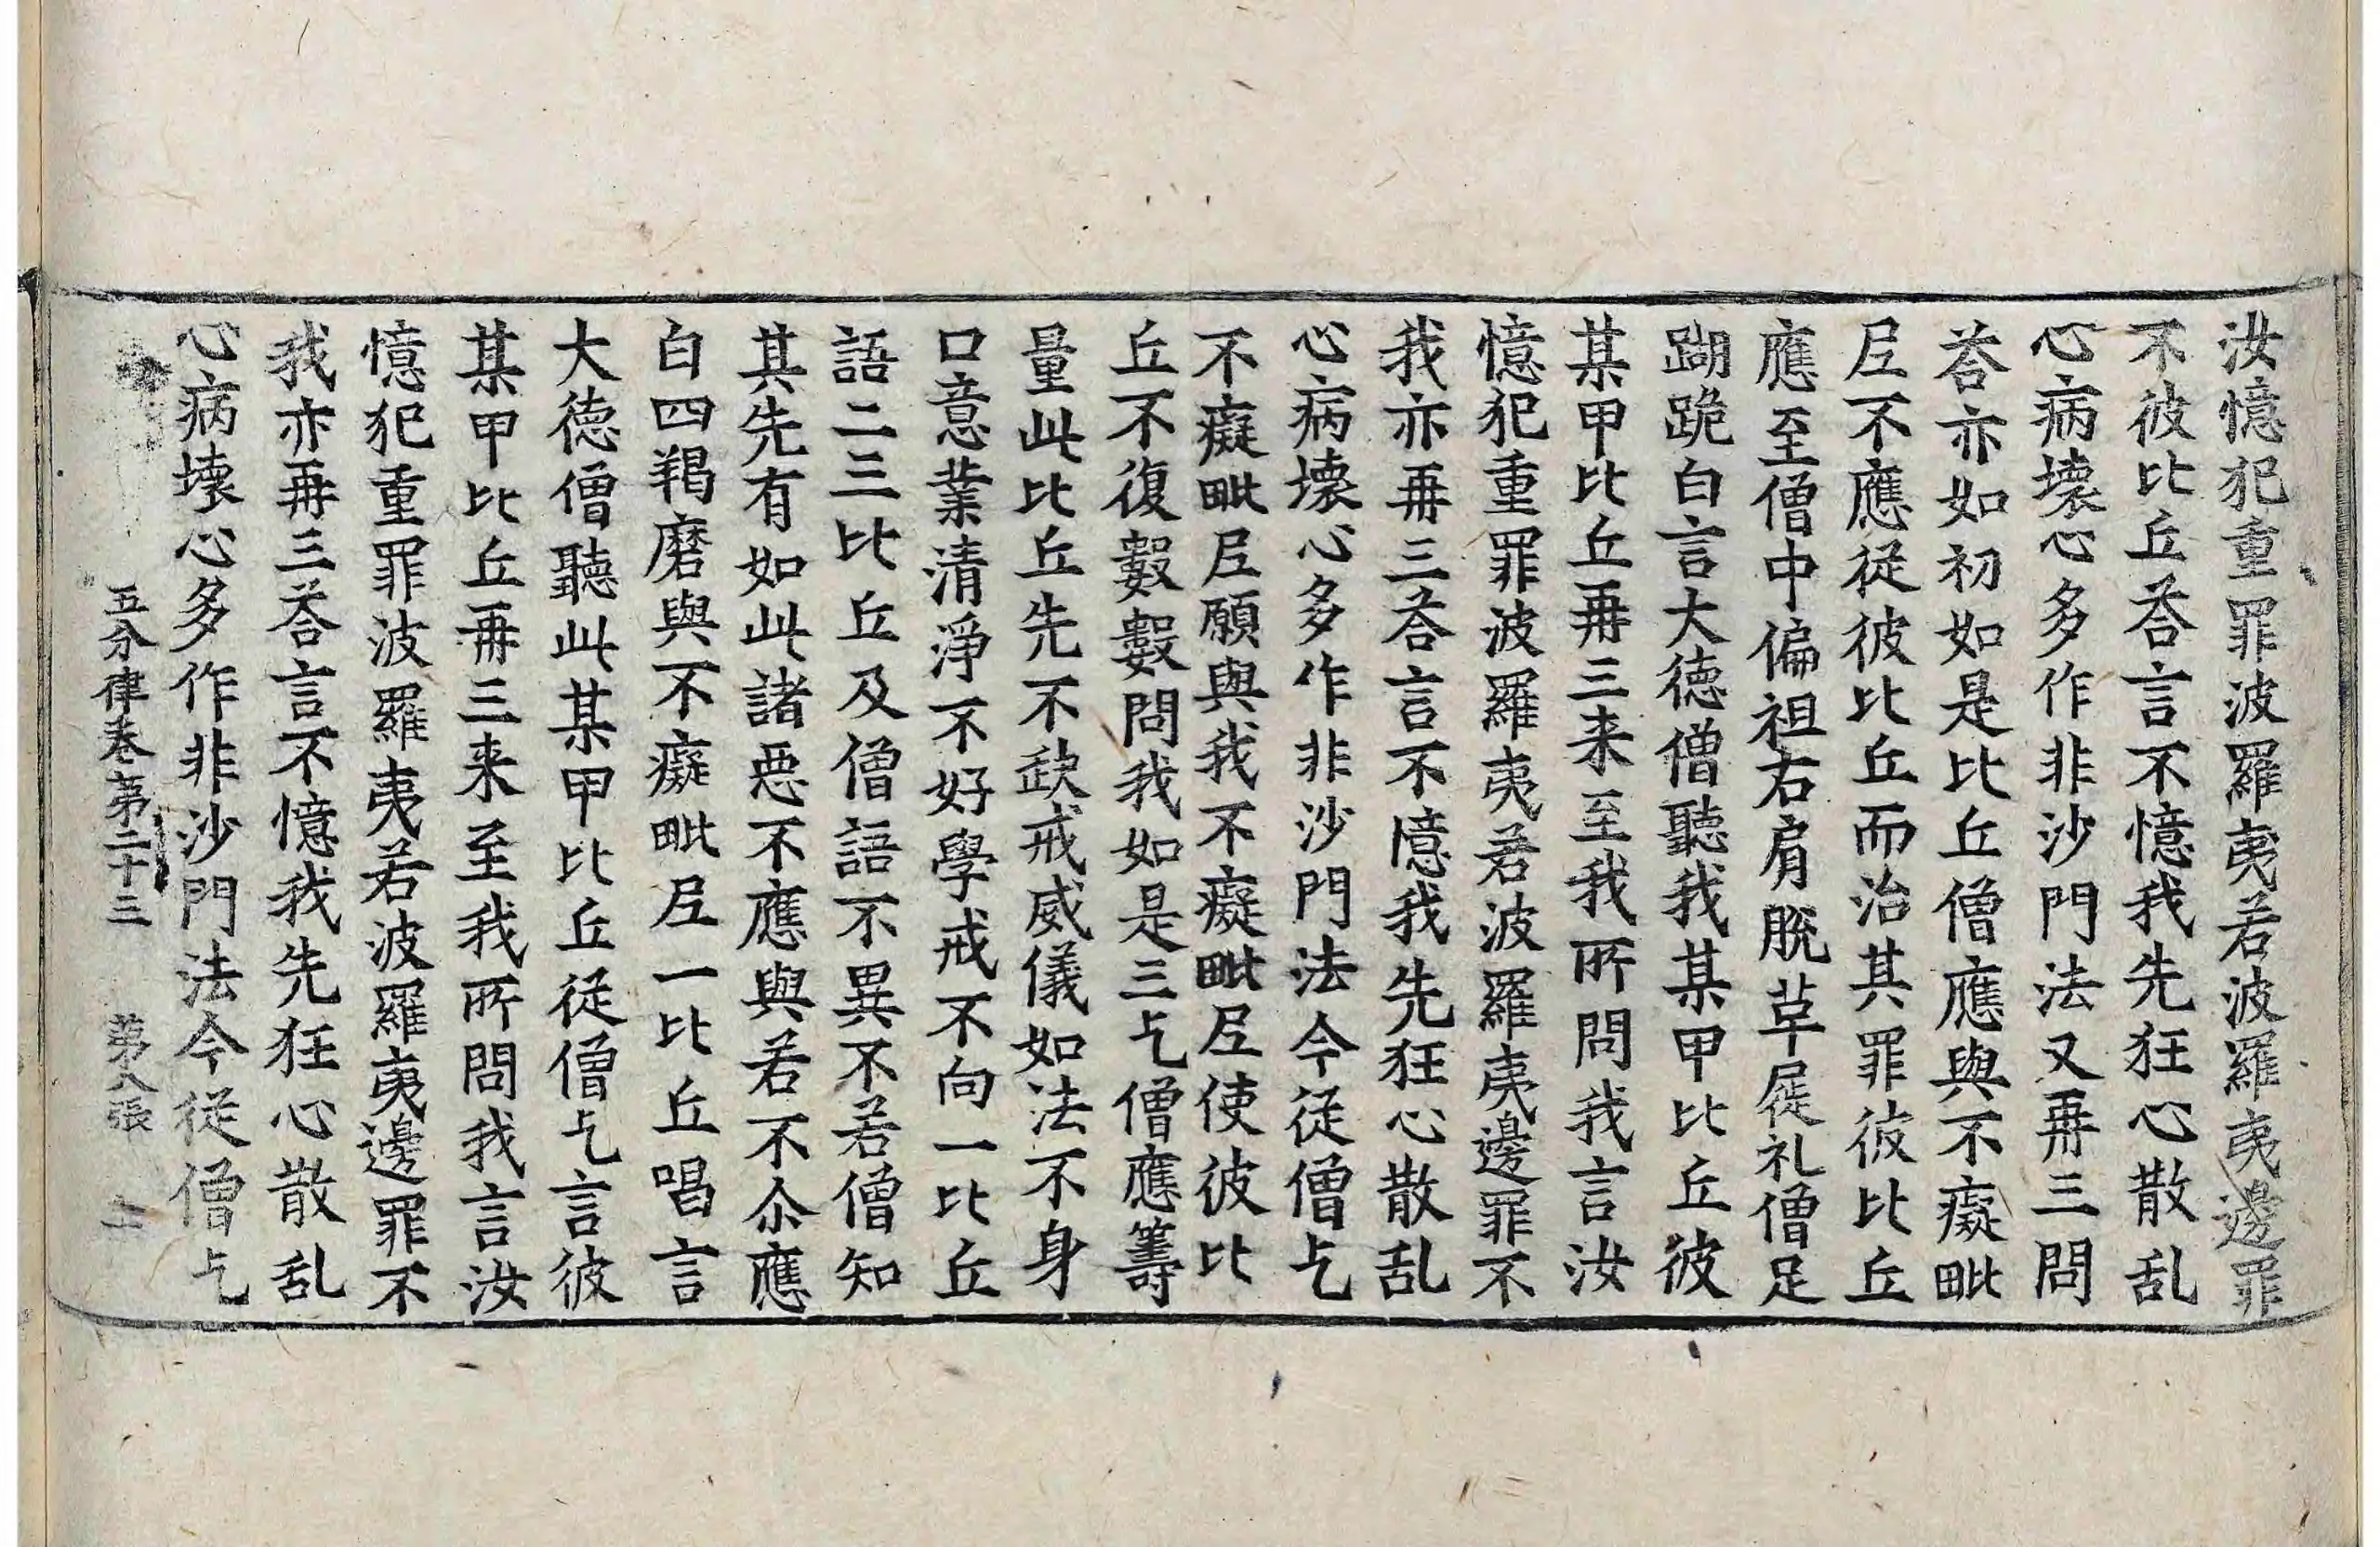 汝憶犯重罪波羅夷若波羅夷邊罪
不彼比丘荅言不憶我先狂心散乱
心病壊心多作非沙門法又再三問
荅亦如初如是比丘僧應與不癡毗
尼不應從彼比丘而治其罪彼比丘
應至僧中偏袒右肩脫革屣礼僧足
䠒跪白言大徳僧聽我某甲比丘彼
某甲比丘再三来至我所問我言汝
憶犯重罪波羅夷若波羅夷邊罪不
我亦再三荅言不憶我先狂心散乱
心病壊心多作非沙門法今從僧乞
不癡毗尼願與我不癡毗尼使彼比
丘不復數數問我如是三乞僧應籌
量此比丘先不缺戒威儀如法不身
口意業清淨不好學戒不向一比丘
語二三比丘及僧語不異不若僧知
其先有如此諸惡不應與若不尒應
白四羯磨與不癡毗尼一比丘唱言
大徳僧聽此某甲比丘從僧乞言彼
某甲比丘再三来至我所問我言汝
憶犯重罪波羅夷若波羅夷邊罪不
我亦再三荅言不憶我先狂心散乱
心病壊心多作非沙門法今從僧乞
五分律卷第二十三 第八張